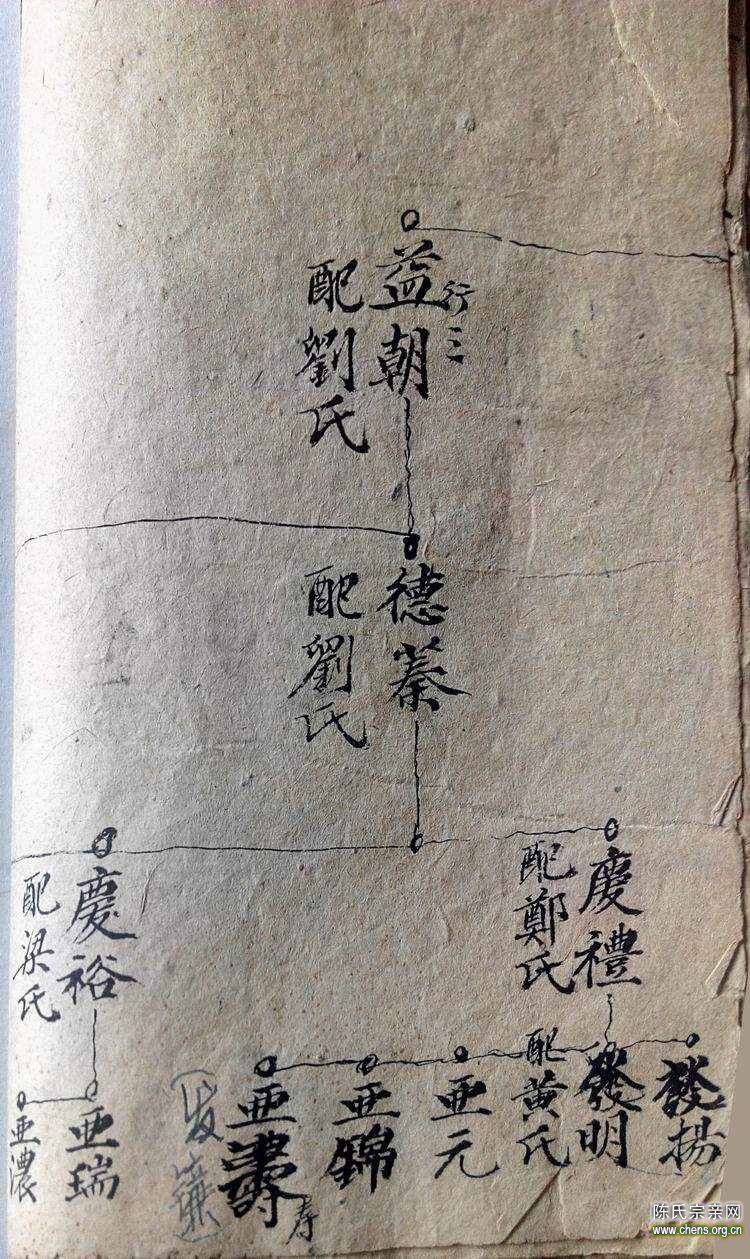 益朝
行三
配劉氏
德蓁
配劉氏
慶禮
配鄭氏
慶裕
配梁氏
發揚
發明
配黃氏
亜元
亜錦
亜壽
寿
亜瑞
亜濃
陈氏宗亲网
www.chens.org.cn